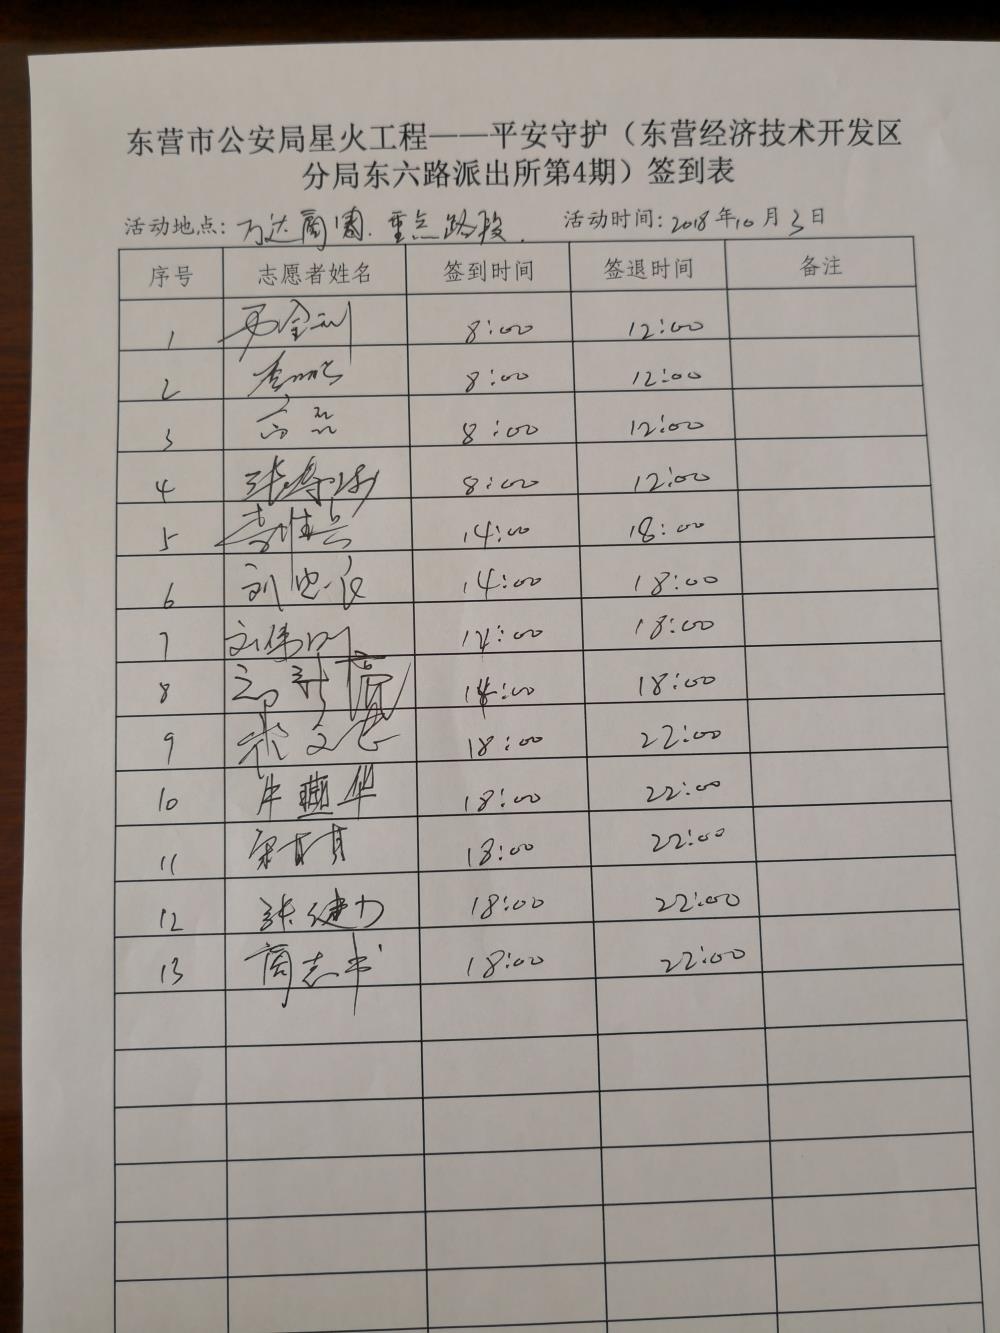 东营市公安局星火工程——平安守护（东营经济技术开发区
分局东六路派出所第4期）签到表
活动地点：万达商圈.重点路段. 活动时间：2018年10月3日
序号 志愿者姓名 签到时间 签退时间 备注
1 8:00 12:00
2 8:00 12:00
3 8:00 12:00
4 8:00 12:00
5 14:00 18:00
6 14:00 18:00
7 14:00 18:00
8 14:00 18:00
9 18:00 22:00
10 18:00 22:00
11 18:00 22:00
12 张健力 18:00 22:00
13 商志书 18:00 22:00